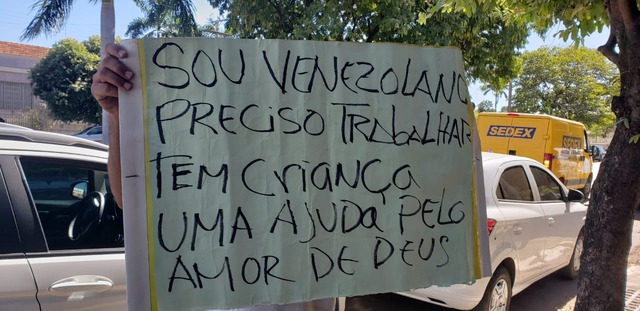 SOU VENEZOLANO
PRECISO TRABALHAR
TEM CRIANÇA
UMA AJUDA PELO
AMOR DE DEUS
SEDEX